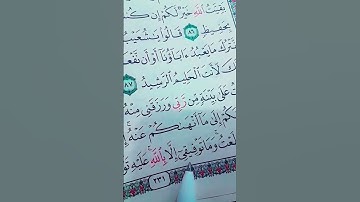 بَقِيَّتُ ٱللَّهِ خَيْرٌ لَّكُمْ إِن كُنـ
بِحَفِيظٍ ٨٦ قَالُوا۟ يَـٰشُعَيْبُ
نَّتْرُكَ مَا يَعْبُدُ ءَابَآؤُنَآ أَوْ أَن نَّفْعَـ
لَأَنتَ ٱلْحَلِيمُ ٱلرَّشِيدُ ٨٧
عَلَىٰ بَيِّنَةٍ مِّن رَّبِّى وَرَزَقَنِى مِنْهُ
ـكُمْ إِلَىٰ مَآ أَنْهَىٰكُمْ عَنْهُ
ـتُ وَمَا تَوْفِيقِىٓ إِلَّا بِٱللَّهِ عَلَيْهِ تَو
٢٣١